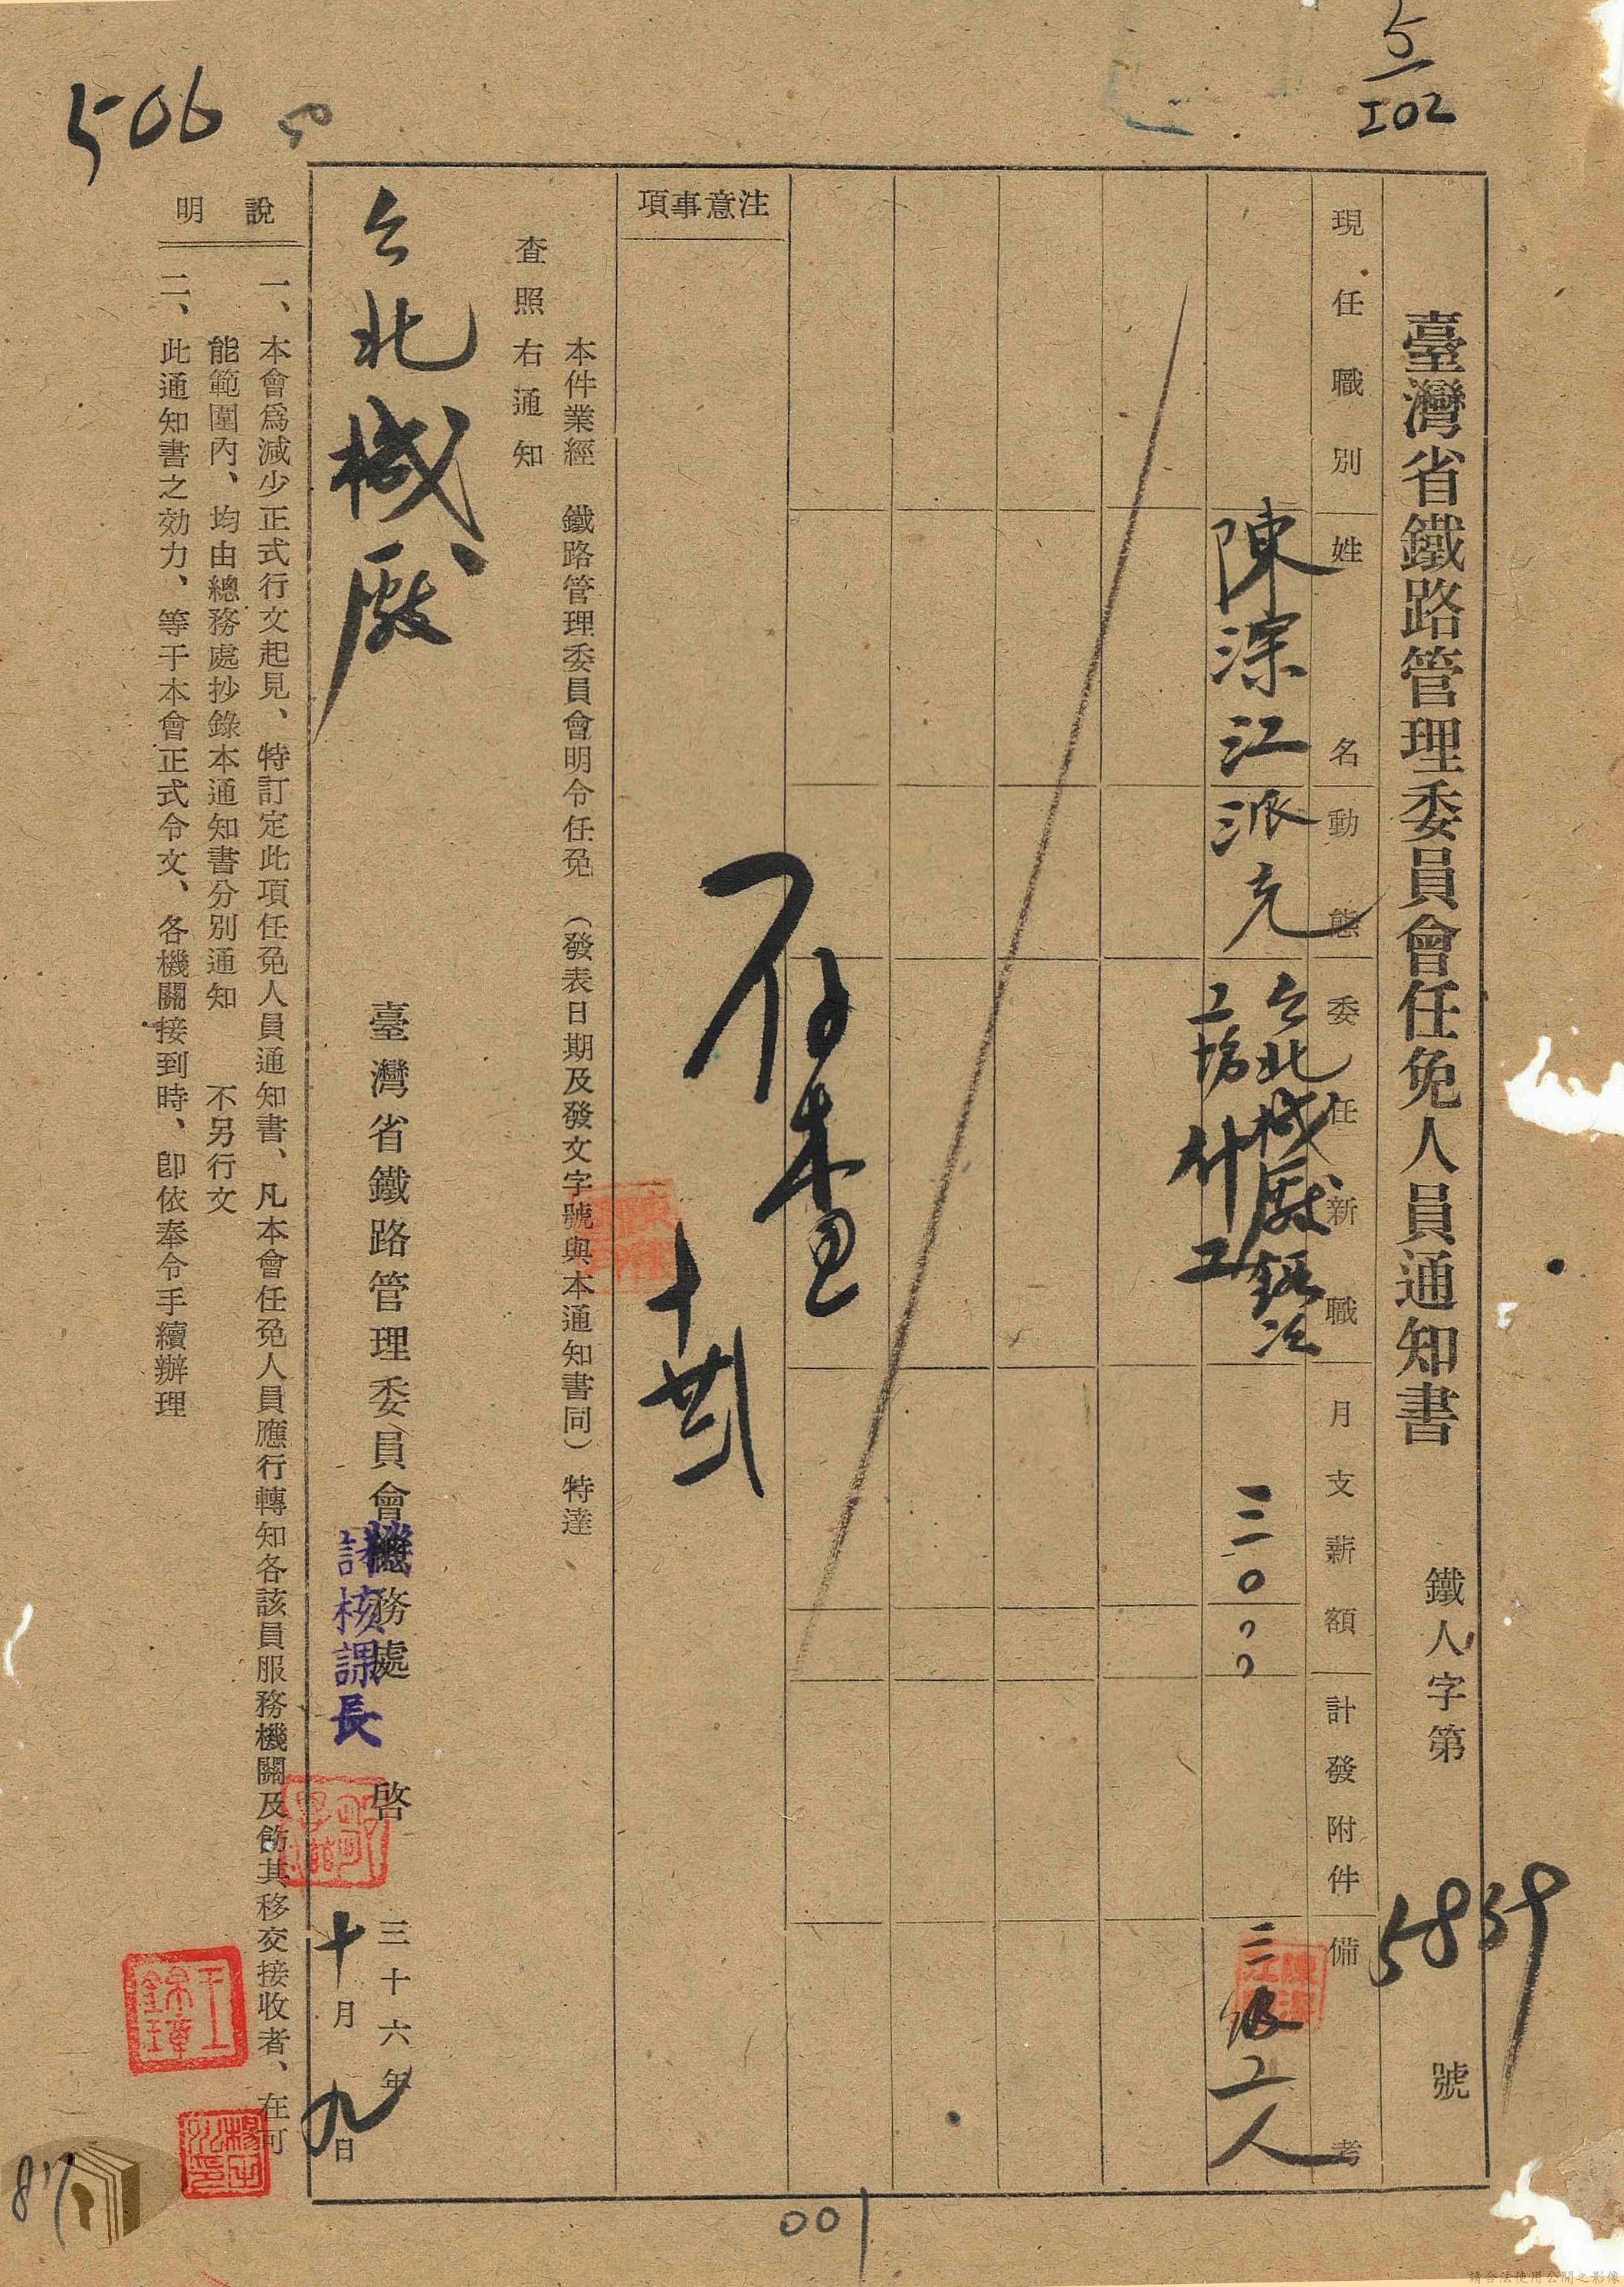 5/102
506
臺灣省鐵路管理委員會任免人員通知書
鐵人字第5839號
現任職別
姓名
動態
委任新職
月支薪額
計發附件
備考
陳深江
派充
台北機廠鎔冶
工場
什工
三〇
三級工人
注意事項
存查
十
本件業經 鐵路管理委員會明令任免 (發表日期及發文字號與本通知書同) 特達
查照
右通知
台北機廠
臺灣省鐵路管理委員會總務處 啓
機
計核課長
三十六年
十月九日
說明
一、本會爲減少正式行文起見、特訂定此項任免人員通知書、凡本會任免人員應行轉知各該員服務機關及飭其移交接收者、在可
能範圍內、均由總務處抄錄本通知書分別通知 不另行文
二、此通知書之効力、等于本會正式令文、各機關接到時、卽依奉令手續辦理
王錦璋
001
817
請合法使用公開之影像